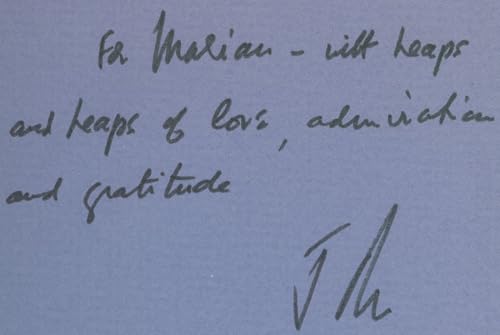 For Marian - with heaps
and heaps of love, admiration
and gratitude